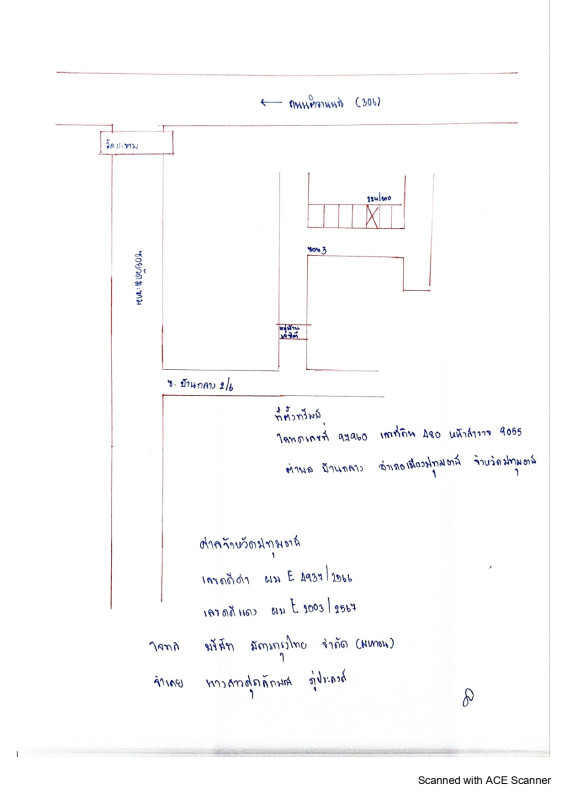 ← ถนนติวานนท์ (306)
วัดมะขาม
224/500
ซอย 3
ซอยวัดมะขาม
หมู่บ้าน
ซ. บ้านกลาง 2/6
ที่ตั้งทรัพย์
โฉนดเลขที่ 97960 เลขที่ดิน 480 หน้าสำรวจ 9055
ตำบล บ้านกลาง อำเภอเมืองปทุมธานี จังหวัดปทุมธานี
ศาลจังหวัดปทุมธานี
เลขคดีดำ ผบ E 4937/2566
เลขคดีแดง ผบ E 2003/2567
โจทก์ บริษัท บัตรกรุงไทย จำกัด (มหาชน)
จำเลย นางสาว
Scanned with ACE Scanner